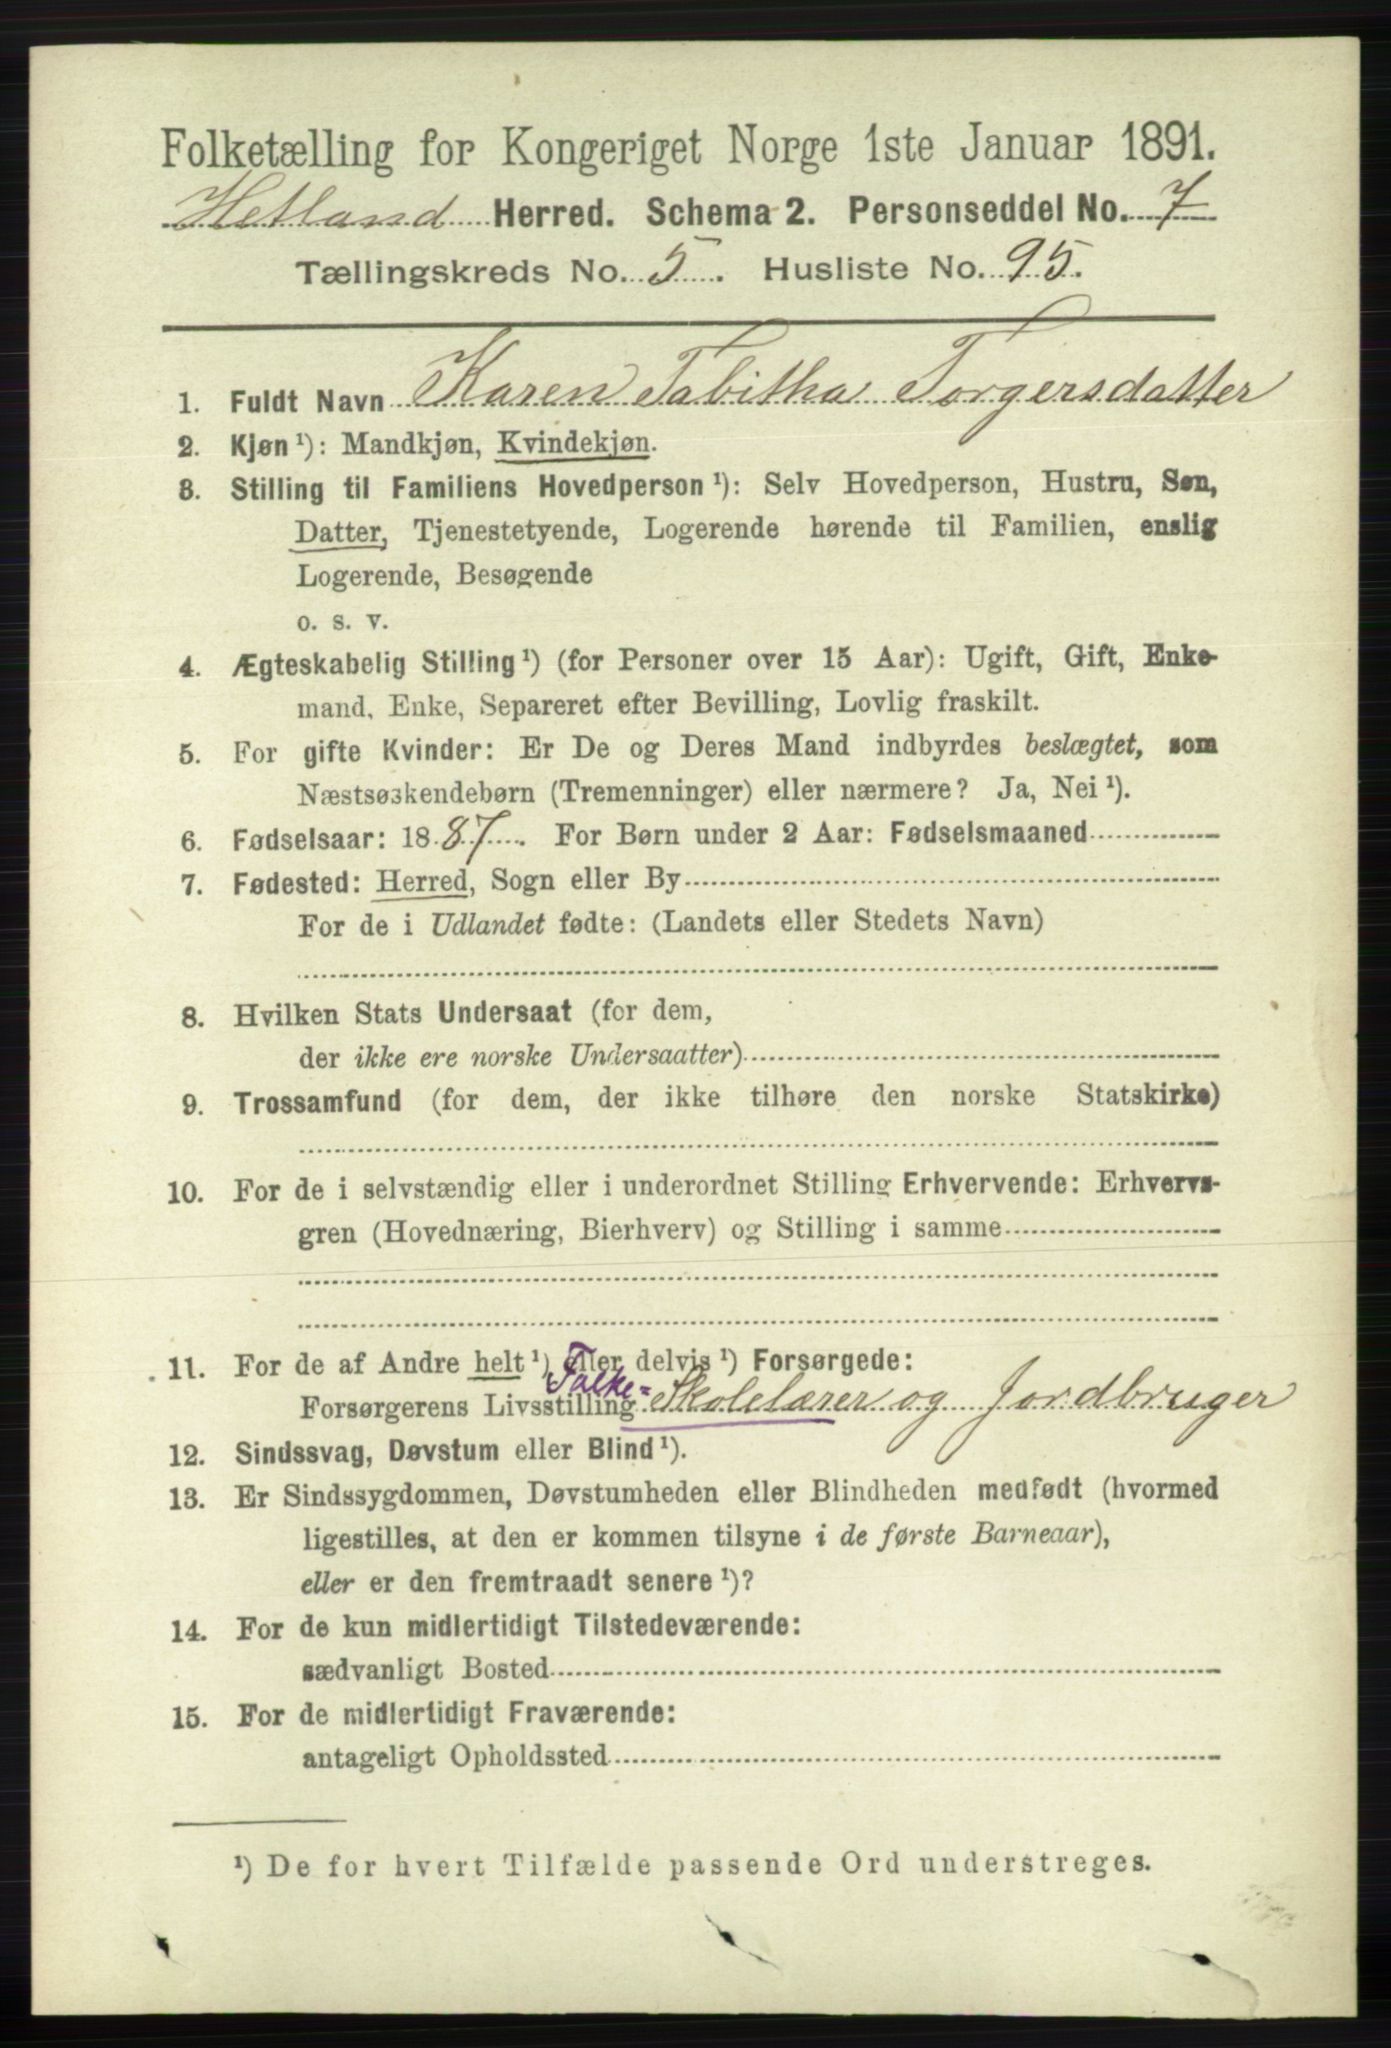 Folketælling for Kongeriget Norge 1ste Januar 1891.
Hetland Herred. Schema 2. Personseddel No. 7
Tællingskreds No. 5. Husliste No. 95.
1. Fuldt Navn Karen Tabitha Torgersdatter
2. Kjøn ¹): Mandkjøn, Kvindekjøn.
3. Stilling til Familiens Hovedperson ¹): Selv Hovedperson, Hustru, Søn,
Datter, Tjenestetyende, Logerende hørende til Familien, enslig
Logerende, Besøgende
o. s. v.
4. Ægteskabelig Stilling ¹) (for Personer over 15 Aar): Ugift, Gift, Enke-
mand, Enke, Separeret efter Bevilling, Lovlig fraskilt.
5. For gifte Kvinder: Er De og Deres Mand indbyrdes beslægtet, som
Næstsøskendebørn (Tremenninger) eller nærmere? Ja, Nei ¹).
6. Fødselsaar: 1887. For Børn under 2 Aar: Fødselsmaaned
7. Fødested: Herred, Sogn eller By
For de i Udlandet fødte: (Landets eller Stedets Navn)
8. Hvilken Stats Undersaat (for dem,
der ikke ere norske Undersaatter)
9. Trossamfund (for dem, der ikke tilhøre den norske Statskirke)
10. For de i selvstændig eller i underordnet Stilling Erhvervende: Erhvervs-
gren (Hovednæring, Bierhverv) og Stilling i samme
11. For de af Andre helt ¹) eller delvis ¹) Forsørgede:
Forsørgerens Livsstilling Folke= Skolelærer og Jordbruger
12. Sindssvag, Døvstum eller Blind ¹).
13. Er Sindssygdommen, Døvstumheden eller Blindheden medfødt (hvormed
ligestilles, at den er kommen tilsyne i de første Barneaar),
eller er den fremtraadt senere ¹)?
14. For de kun midlertidigt Tilstedeværende:
sædvanligt Bosted
15. For de midlertidigt Fraværende:
antageligt Opholdssted
¹) De for hvert Tilfælde passende Ord understreges.